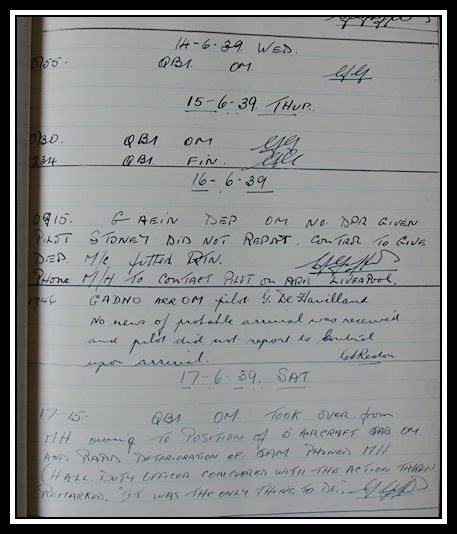 14-6-39. WED.
0755. QBI OM.
15-6-39. THUR.
0730. QBI OM
1234 QBI FIN.
16-6-39
0915. G AEIN DEP OM NO. DPR GIVEN
PILOT STONEY DID NOT REPORT. CONTROL TO GIVE
DEP. M/C futted RTN.
PHONE M/H TO CONTACT PILOT ON ARR. LIVERPOOL.
1746 GADNO ARR OM pilot G. De Havilland
No news of probable arrival was received
and pilot did not report to Control
upon arrival.
17-6-39. SAT.
17-15. QBI OM. TOOK OVER from
MH owing TO POSITION of 5 AIRCRAFT QAB OM
AND RAPID DETERIORATION OF QAM. PHONED MH
(HALL. DUTY OFFICER CONCURRED WITH THE ACTION TAKEN
REMARKED, "IT WAS THE ONLY THING TO DO."